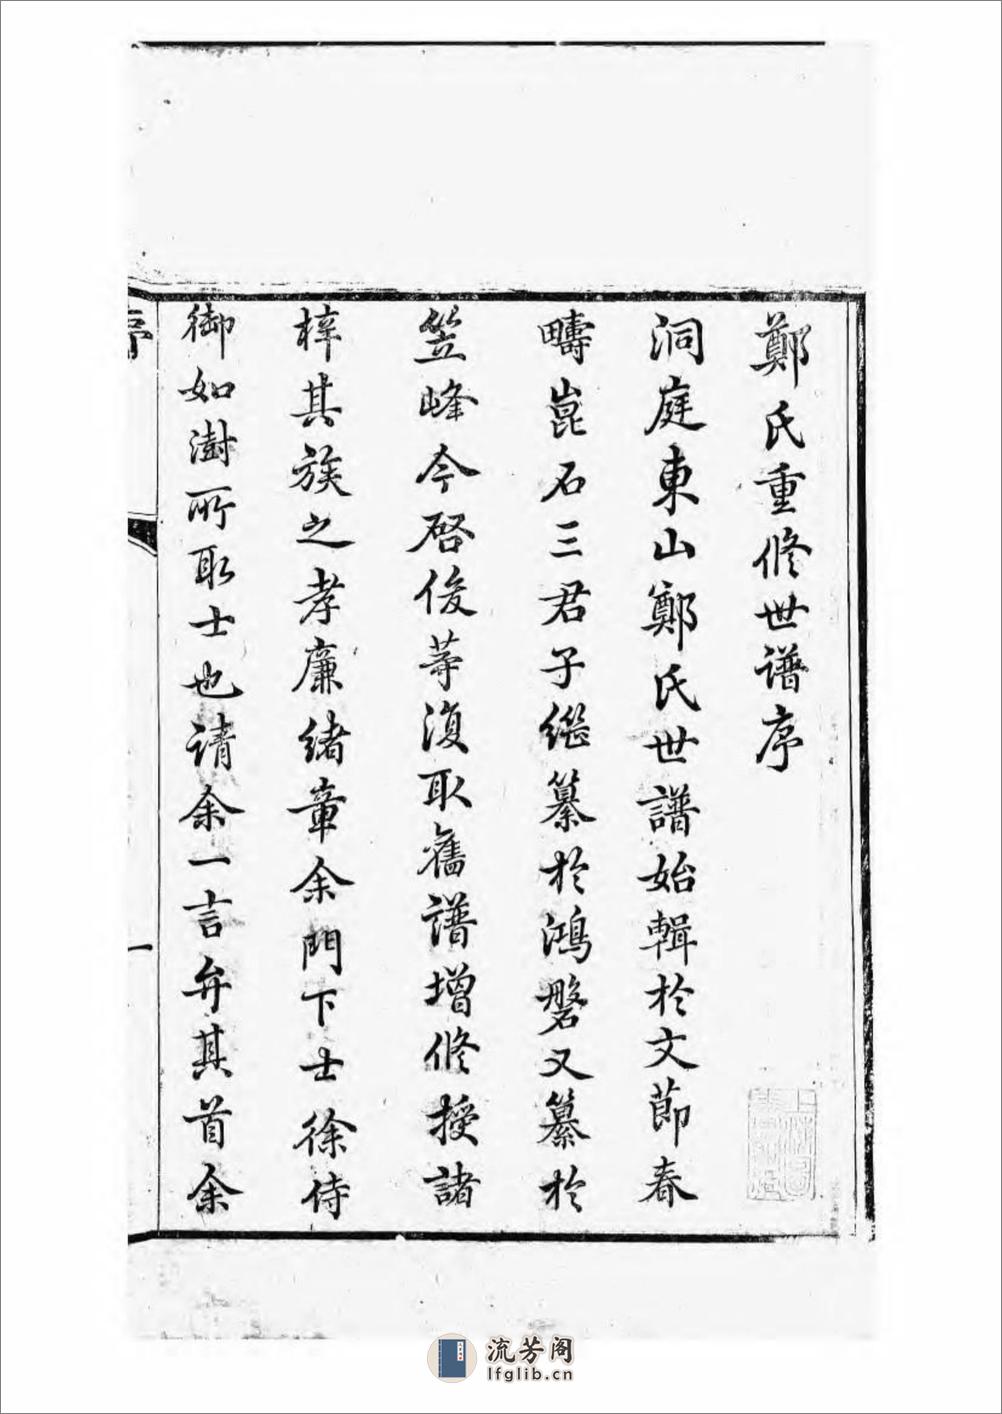 鄭氏重修世譜序
洞庭東山鄭氏世譜始輯於文莭春
疇崑石三君子繼纂於鴻磐又纂於
笠峰今啓俊等復取舊譜增修授諸
梓其族之孝廉緒章余門下士徐侍
御如澍所取士也請余一言弁其首余
序
一
流芳阁
lfglib.cn